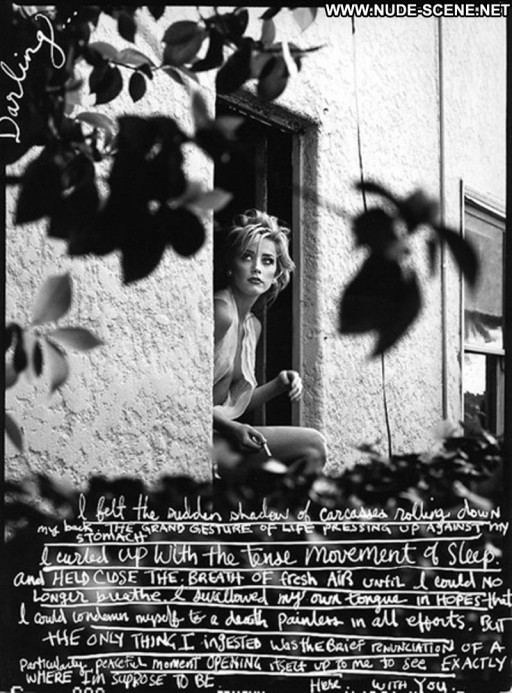 WWW.NUDE-SCENE.NET
Darling...
I felt the sudden shadow of carcasses rolling down
my back. THE GRAND GESTURE OF LIFE PRESSING UP AGAINST MY
STOMACH
I curled up With the tense movement of Sleep.
and HELD CLOSE THE BREATH OF fresh AIR until I could NO
Longer breathe. I swallowed my own tongue in HOPES that
I could condemn myself to a death Painless in all efforts. BUT
THE ONLY THING I INJESTED WAS the Brief renunciation OF A
Particular peaceful moment OPENING itself up to me to see EXACTLY
WHERE I'm SUPPOSE TO BE.
Here. WITH YOU